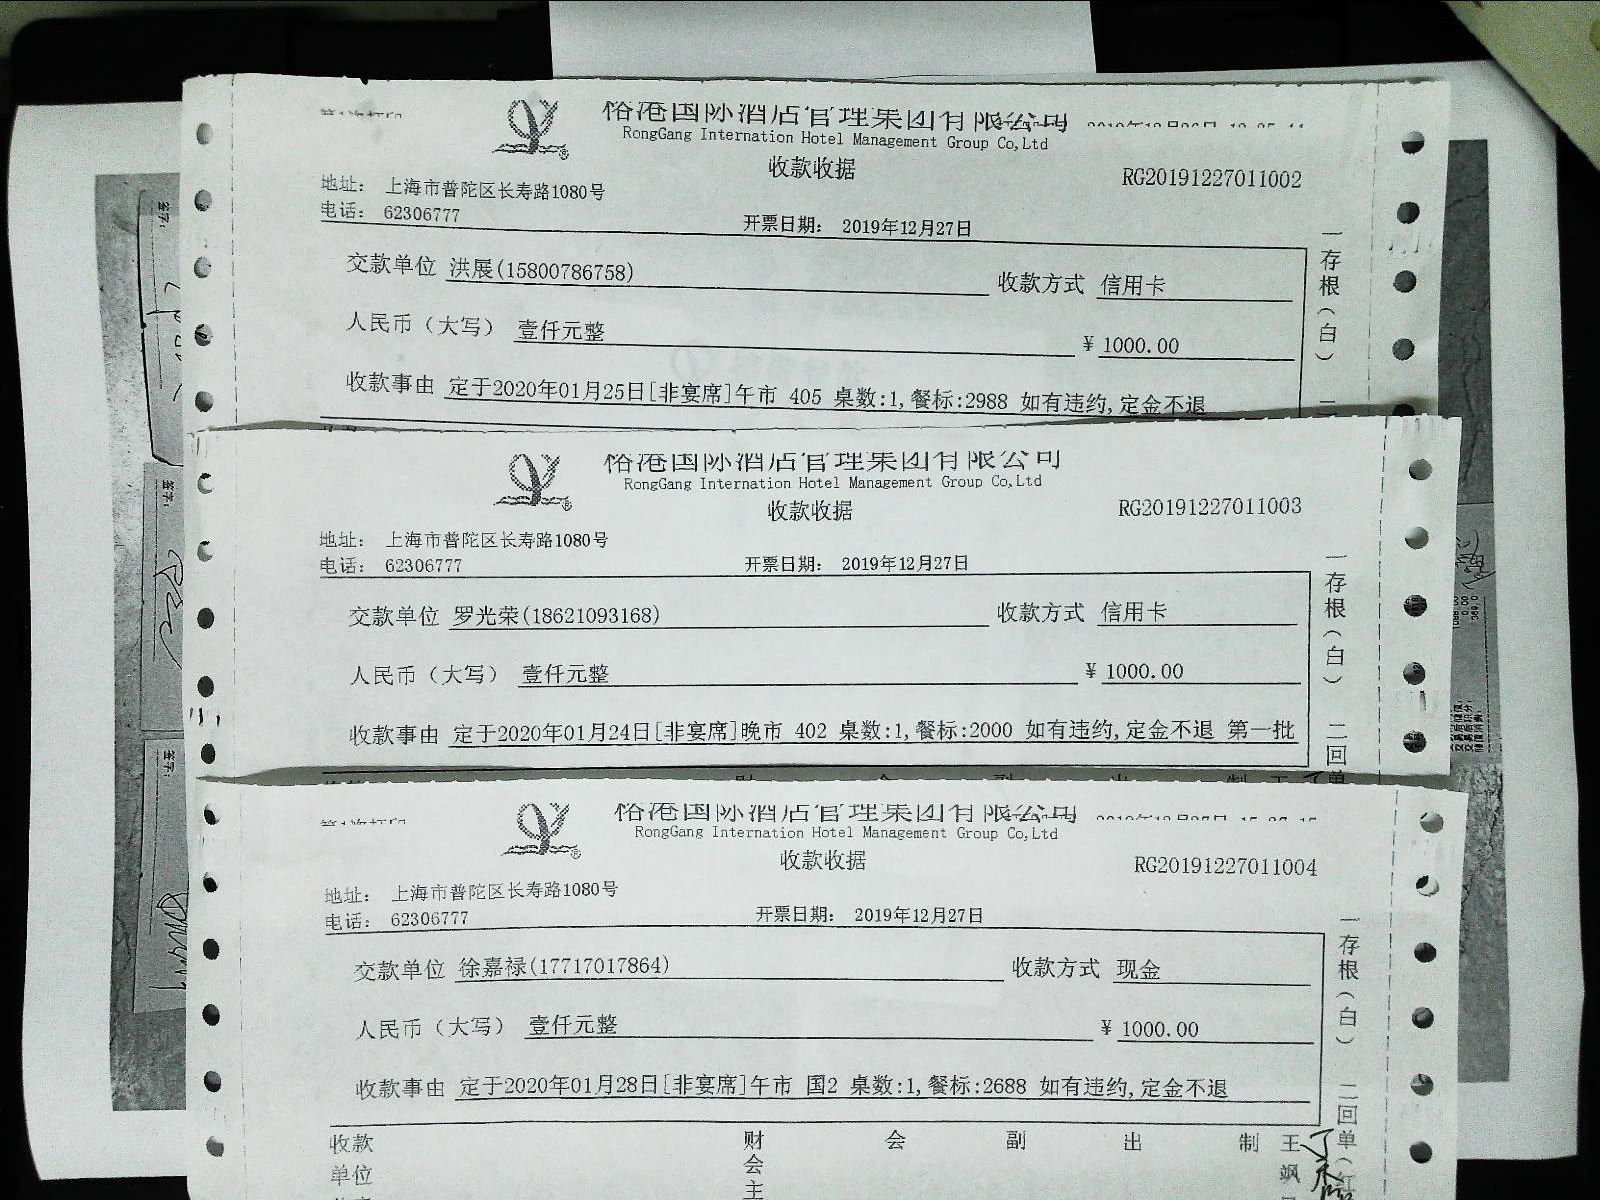 裕港国际酒店管理集团有限公司
RongGang Internation Hotel Management Group Co,Ltd
收款收据
RG20191227011002
地址: 上海市普陀区长寿路1080号
电话: 62306777
开票日期: 2019年12月27日
交款单位 洪展(15800786758) 收款方式 信用卡
人民币(大写) 壹仟元整 ¥ 1000.00
收款事由 定于2020年01月25日[非宴席]午市 405 桌数:1,餐标:2988 如有违约,定金不退
一存根(白)
裕港国际酒店管理集团有限公司
RongGang Internation Hotel Management Group Co,Ltd
收款收据
RG20191227011003
地址: 上海市普陀区长寿路1080号
电话: 62306777
开票日期: 2019年12月27日
交款单位 罗光荣(18621093168) 收款方式 信用卡
人民币(大写) 壹仟元整 ¥ 1000.00
收款事由 定于2020年01月24日[非宴席]晚市 402 桌数:1,餐标:2000 如有违约,定金不退 第一批
一存根(白) 二回单
裕港国际酒店管理集团有限公司
RongGang Internation Hotel Management Group Co,Ltd
收款收据
RG20191227011004
地址: 上海市普陀区长寿路1080号
电话: 62306777
开票日期: 2019年12月27日
交款单位 徐嘉禄(17717017864) 收款方式 现金
人民币(大写) 壹仟元整 ¥ 1000.00
收款事由 定于2020年01月28日[非宴席]午市 国2 桌数:1,餐标:2688 如有违约,定金不退
一存根(白) 二回单(红
收款 财 会 副 出 制 王
单位 会 飒
主